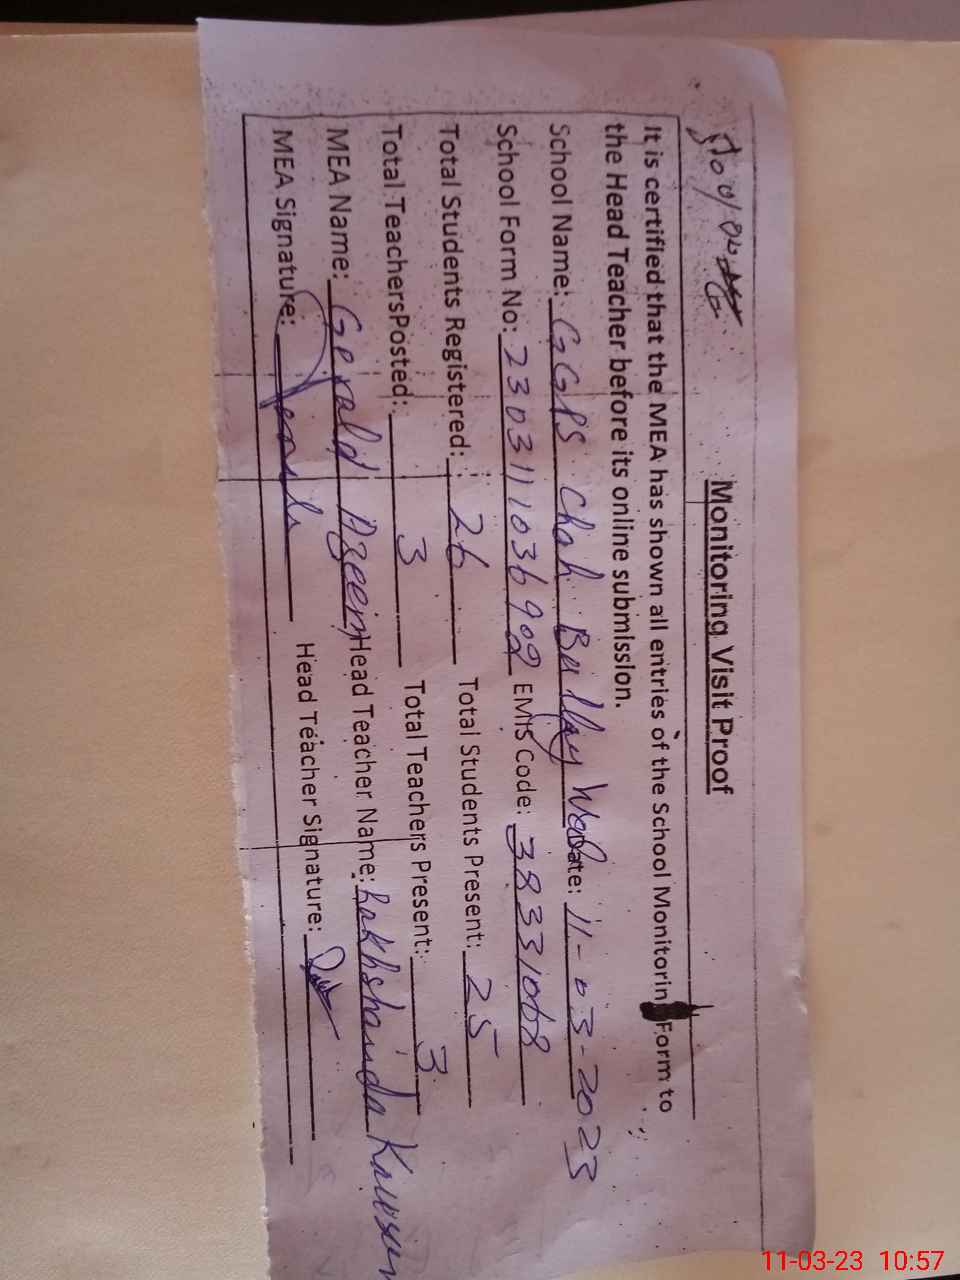 Monitoring Visit Proof
It is certified that the MEA has shown all entries of the School Monitorin Form to
the Head Teacher before its online submission.
School Name: GGPS Chah Bullay Wala Date: 11-03-2023
School Form No: 230311036902 EMIS Code: 38331068
Total Students Registered: 26 Total Students Present: 25
Total TeachersPosted: 3 Total Teachers Present: 3
MEA Name: Gerald Azeem Head Teacher Name: Rakhshanda Kausar
MEA Signature: Head Teacher Signature:
11-03-23 10:57